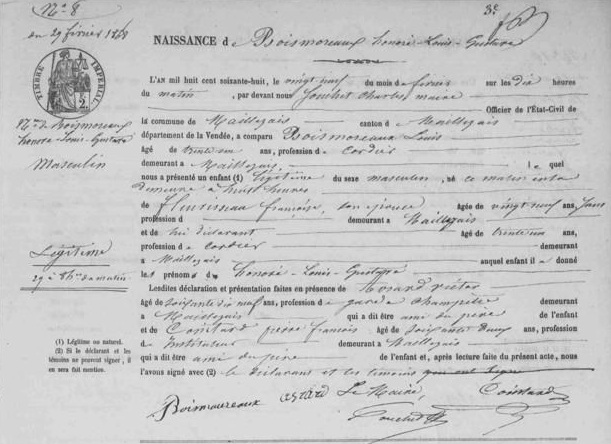 N° 8
du 29 février 1868
3e
NAISSANCE de Boismoreaux honoré Louis Gustave
TIMBRE IMPÉRIAL
L'AN mil huit cent soixante-huit, le vingt neuf du mois de février sur les dix heures
du matin, par devant nous Charles maire
Officier de l'État-Civil de
la commune de Maillezais canton de Maillezais
département de la Vendée, a comparu Boismoreaux Louis
âgé de trente un ans, profession de cordier
demeurant à Maillezais le quel
nous a présenté un enfant (1) légitime du sexe masculin, né ce matin en ta
demeure à huit heures
de françoise, son épouse âgée de vingt neuf ans, sans
profession d demeurant à Maillezais
et de lui déclarant âgé de trente un ans,
profession de cordier
à Maillezais auquel enfant il a donné
le prénom de honoré-Louis-Gustave
Lesdites déclaration et présentation faites en présence de
âgé de soixante dix neuf ans, profession de garde champêtre demeurant
à Maillezais qui a dit être ami du père de l'enfant
et de françois âgé de soixante deux ans, profession
d'Instituteur demeurant à Maillezais
qui a dit être ami du père de l'enfant et, après lecture faite du présent acte, nous
l'avons signé avec (2) le déclarant et les témoins
N° de Boismoreaux
honoré-Louis-Gustave
Masculin
Légitime
29 à 8h du matin
(1) Légitime ou naturel.
(2) Si le déclarant et les
témoins ne peuvent signer, il
en sera fait mention.
Boismoureaux Le Maire,